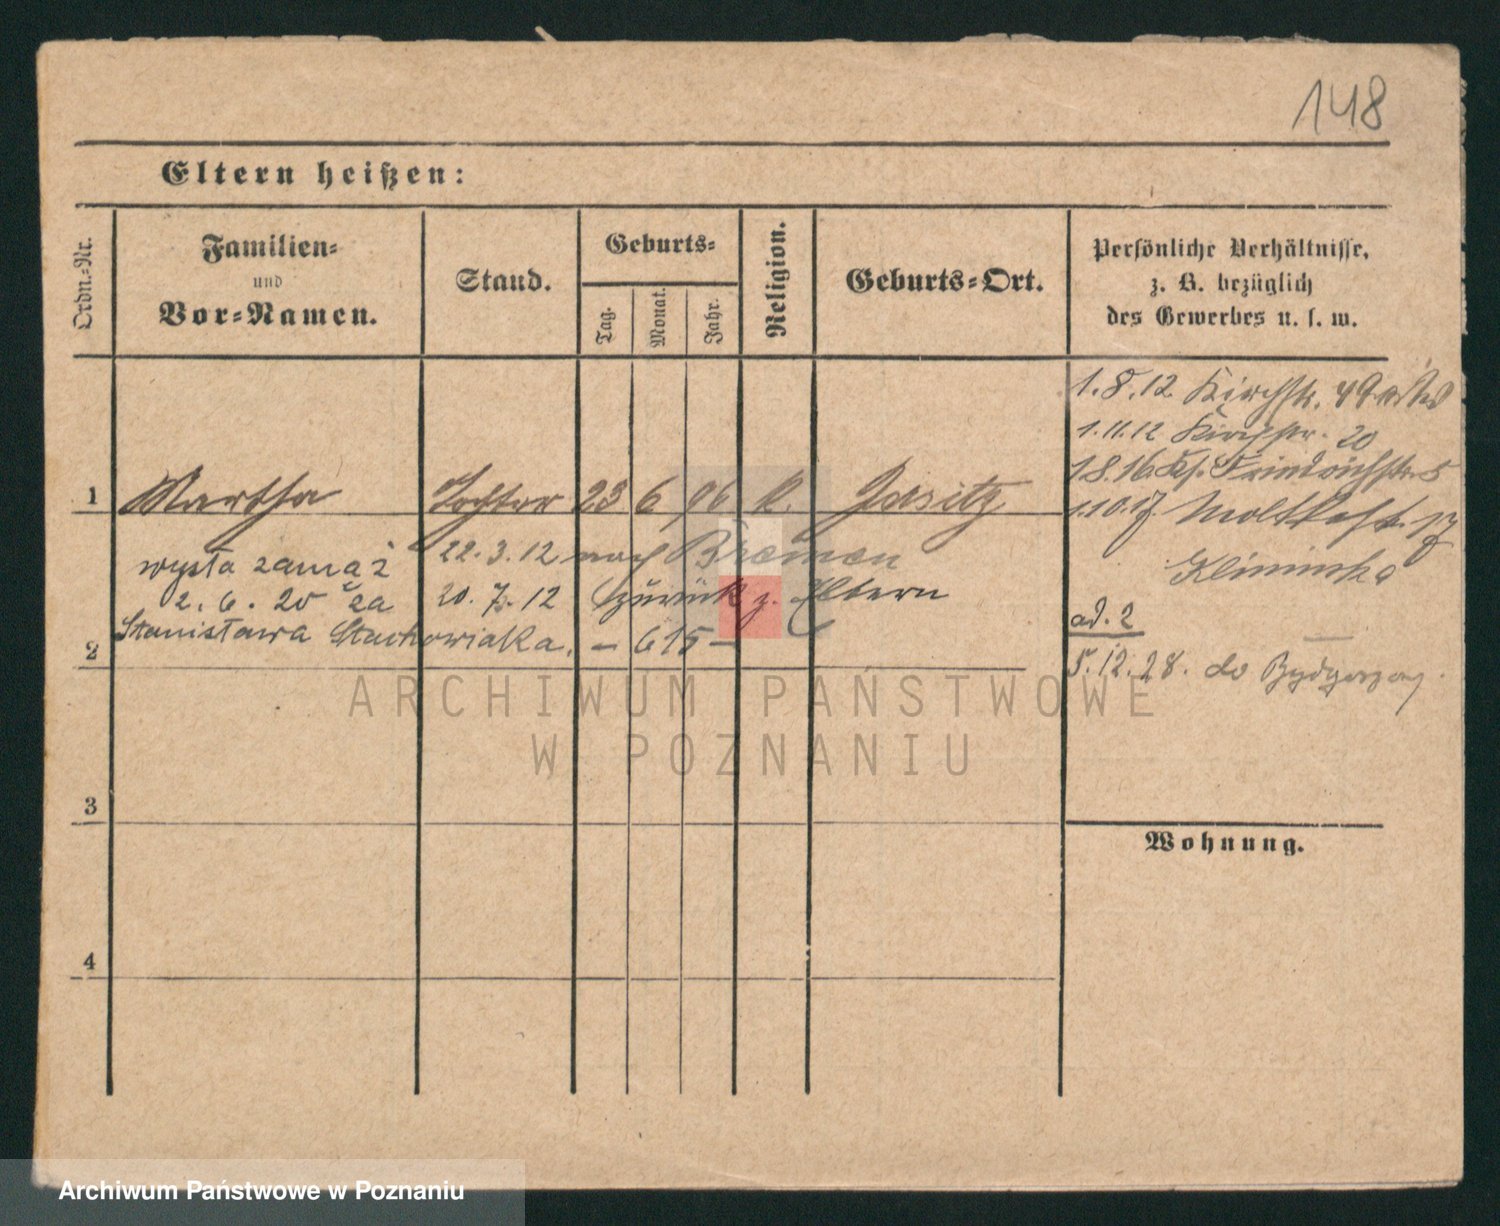 148
Eltern heißen:
Ordn.-Nr.
Familien-
und
Vor-Namen.
Stand.
Geburts-
Tag.
Monat.
Jahr.
Religion.
Geburts-Ort.
Persönliche Verhältnisse,
z. B. bezüglich
des Gewerbes u. s. w.
1.8.12 Kirchstr. 49
1.11.12 Kirchstr. 20
1.8.16 Friedrichstr. 5
1.10.17 Moltkestr. 17
1 Martha Tochter 23 6 96 k. Jersitz
22.3.12 nach Bremen
wyszła zamąż
20.7.12 zurück z. Eltern
2.6.20 za
Stanisława Stachowiaka. – 615 –
2
ad. 2
5.12.28. do Bydgoszczy.
3
Wohnung.
4
ARCHIWUM PAŃSTWOWE
W POZNANIU
Archiwum Państwowe w Poznaniu